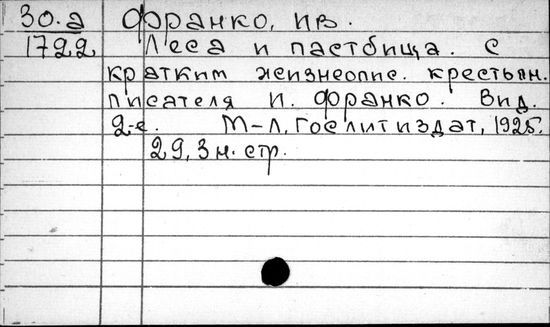 30.а Франко, Ив.
1722 Леса и пастбища. С
кратким жизнеопис. крестьян.
писателя И. Франко. Вид.
2-е. М-Л, Гослитиздат, 1925.
29, 3 н. стр.